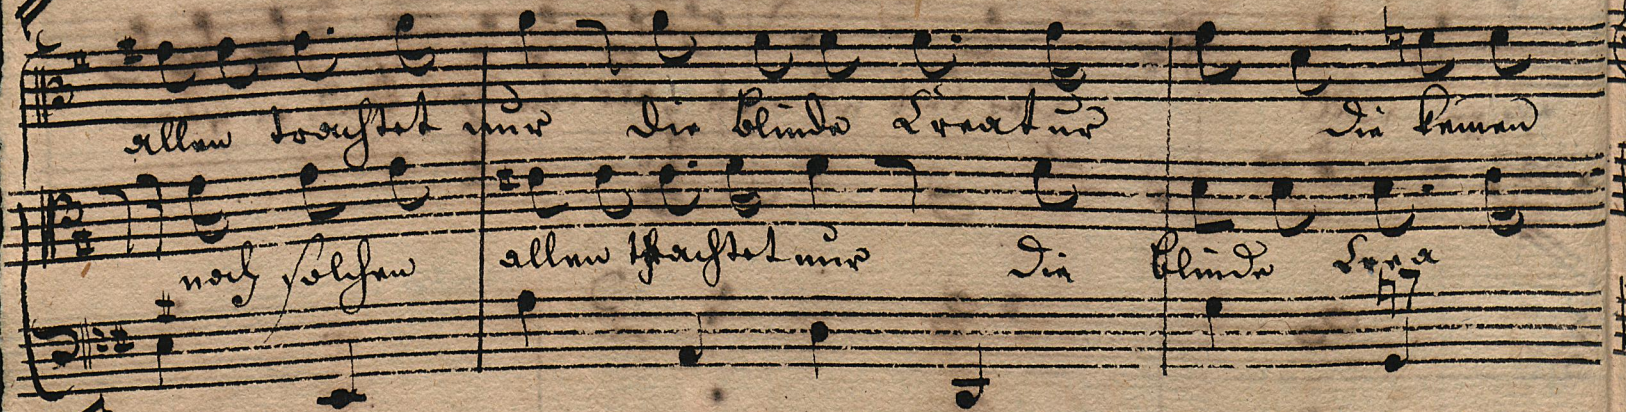 allen trachtet nur die blinde Creatur die keinen
nach solchen allen trachtet nur die blinde Crea
7